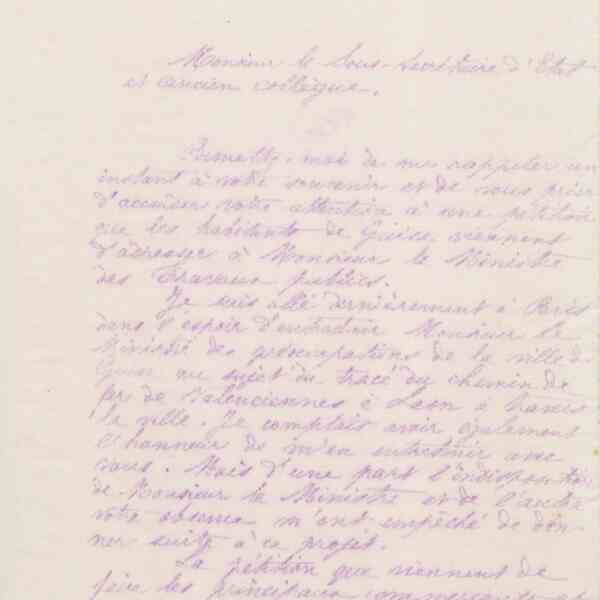 Monsieur le Sous-Secrétaire d'Etat
et ancien collègue.
Permettez-moi de me rappeler un
instant à votre souvenir et de vous prier
d'accorder votre attention à une pétition
que les habitants de Guise viennent
d'adresser à Monsieur le Ministre
des Travaux publics.
Je suis allé dernièrement à Paris
dans l'espoir d'entretenir Monsieur le
Ministre des préoccupations de la ville de
Guise au sujet du tracé du chemin de
fer de Valenciennes à Laon à travers
la ville. Je comptais avoir également
l'honneur de m'en entretenir avec
vous. Mais d'une part l'indisposition
de Monsieur le Ministre et de l'autre
votre absence m'ont empêché de don-
ner suite à ce projet.
La pétition que viennent de
faire les principaux commerçants et